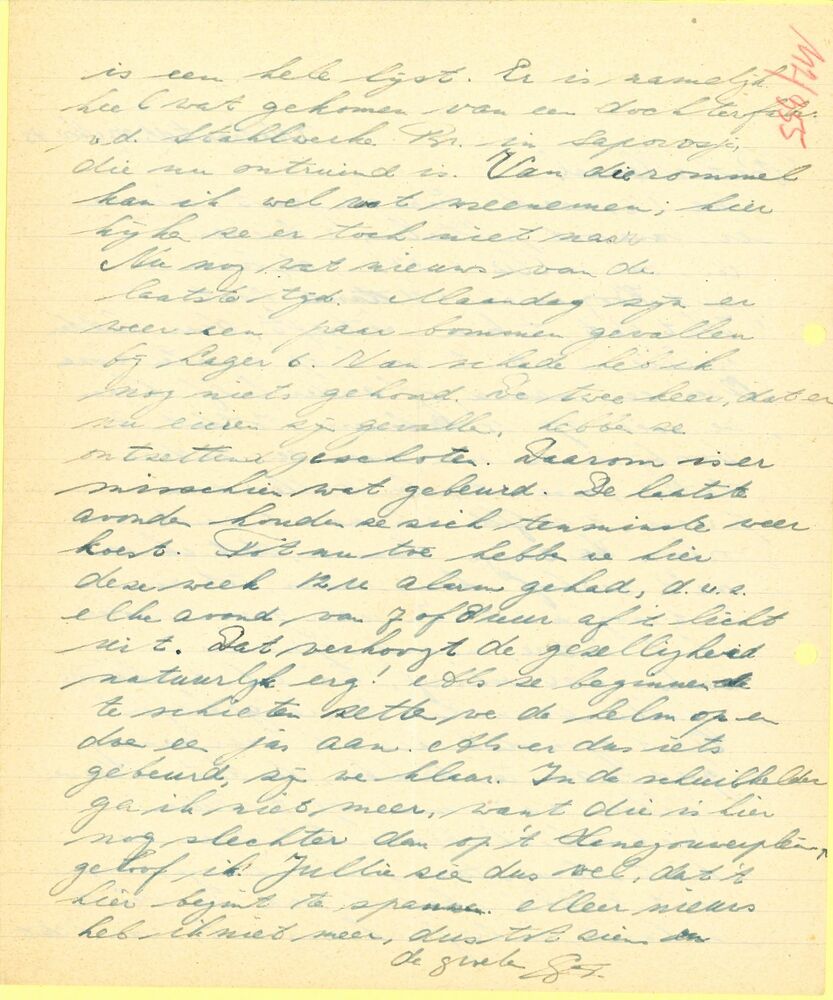 is een hele lijst. Er is namelijk
heel wat gekomen van een dochterfabr.
v.d. Stahlwerke Br. in Saporosj,
die nu ontruimd is. Van die rommel
kan ik wel wat meenemen; hier
kijke ze er toch niet naar.
Nu nog wat nieuws van de
laatste tijd. Maandag zijn er
weer een paar bommen gevallen
bij Lager 6. Van schade heb ik
nog niets gehoord. De twee keer, dat er
nu eieren zijn gevalle, hebbe ze
ontzettend geschoten. Daarom is er
misschien wat gebeurd. De laatste
avonden houden ze zich tenminste weer
koest. Tot nu toe hebbe we hier
deze week 12 u alarm gehad, d.w.z.
elke avond van 7 of 8 uur af 't licht
uit. Dat verhoogt de gezelligheid
natuurlijk erg! Als ze beginnen
te schieten zette we de helm op en
doe een jas aan. Als er dus iets
gebeurd, zij we klaar. In de schuilkelder
ga ik niet meer, want die is hier
nog slechter dan op 't Henegouwerplein,
geloof ik! Jullie zie dus wel, dat 't
hier begint te spannen. Meer nieuws
heb ik niet meer, dus tot ziens en
de groete